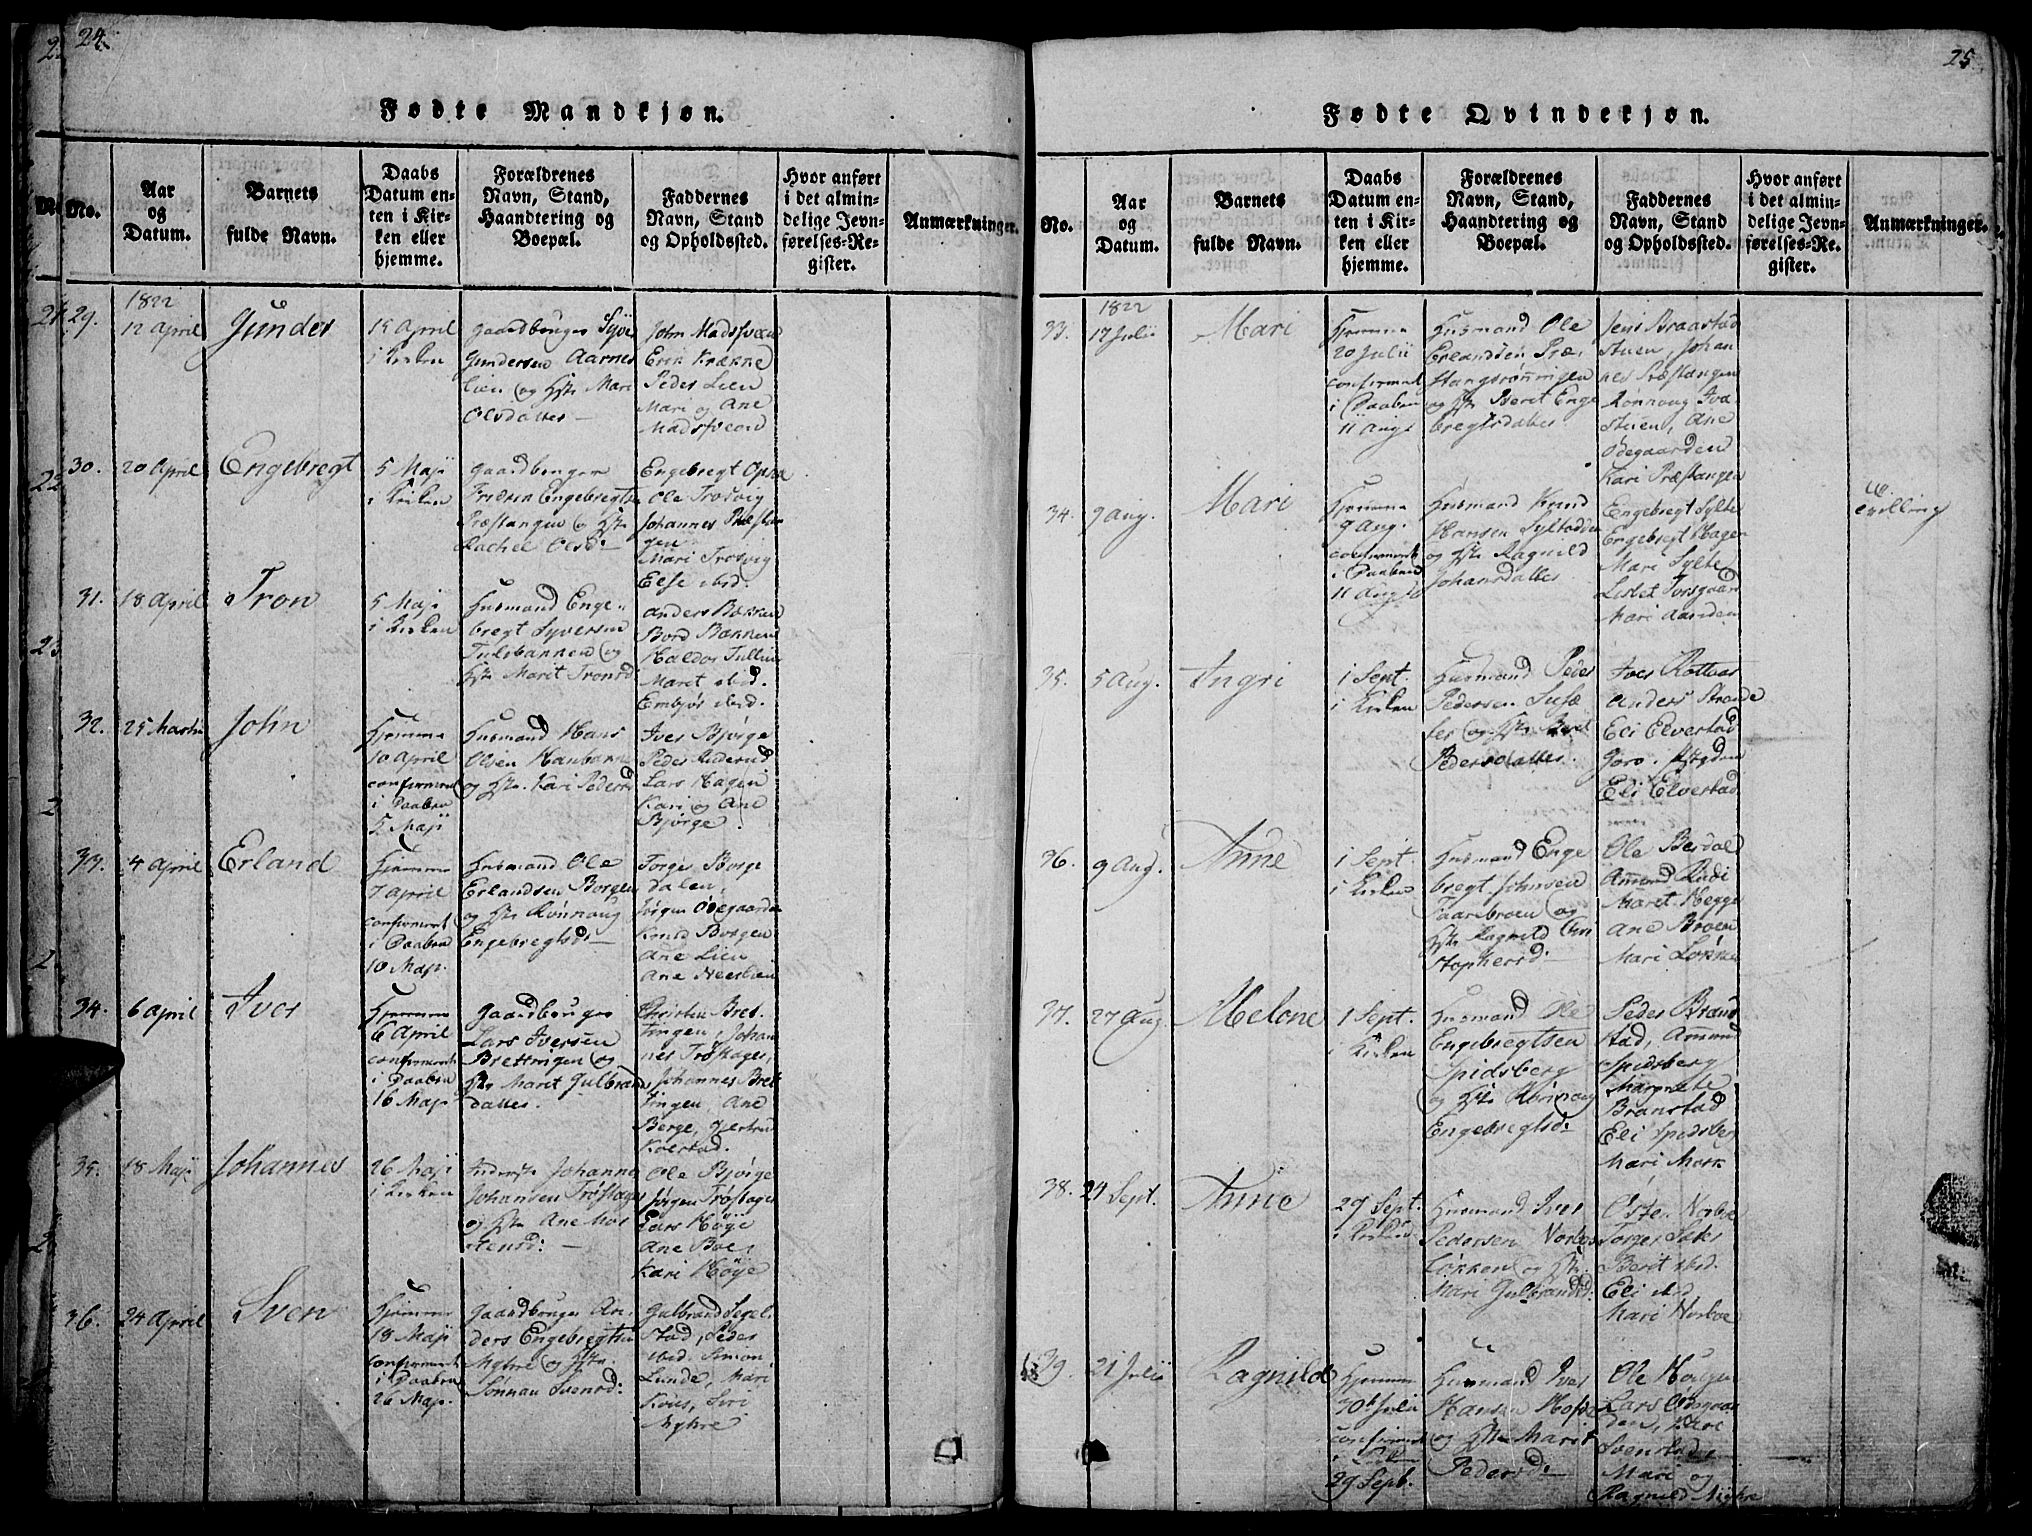 24.
Fødte Mandkjøn.
No.
Aar og Datum.
Barnets fulde Navn.
Daabs Datum enten i Kirken eller hjemme.
Forældrenes Navn, Stand, Haandtering og Boepæl.
Faddernes Navn, Stand og Opholdssted.
Hvor anført i det almindelige Jevnførelses-Register.
Anmærkninger.
1822
29.
12 April
Gunder
19 April
i Kirken
Gaardbruger Syver
Gundersen Aarnes
lien og Hst: Mari
Olsdatter
John Madssveen
Erik Krække
Peder Lien
Mari og Ane
Madssveen
30.
20 April
Engebregt
5 Maji
i Kirken
Gaardbruger
Engebregts
Præstangen og Hst:
Rachel Olsd:
Engebregt
Ole Trosvig
Johannes Præstan
gen
Mari Trosvig
Else ibid.
31.
18 April
Tron
5 Maji
i Kirken
Husmand Enge
bregt Syversen
og
Hst: Marit Tronsd
Anders Bækken
Bord Bækken
Haldor
Maret ibid.
Embjør ibid.
32.
25 Martii
John
Hjemme
10 April
confirmeret
i Daaben
5 Maji
Husmand Hans
Olsen
og Hst: Kari Pedersd
Iver Bjørge
Peder
Lars Hagen
Kari og Ane
Bjørge.
33.
4 April
Erland
Hjemme
7 April
confirmeret
i Daaben
10 Maji
Husmand Ole
Erlandsen Borgen
og Hst: Rønnaug
Engebregtsd:
Torge Borge
dalen,
Jørgen Ødegaarden
Knud Borgen
Ane Lien
Ane
34.
6 April
Iver
Hjemme
6 April
confirmeret
i Daaben
16 Maji
Gaardbruger
Lars Iversen
Brettingen og
Hst: Marit Gulbrands
datter.
Christen Bret
tingen, Johan
nes Trøstager,
Johannes Bret
tingen, Ane
Berge, Gjertrud
Kolstad.
35.
18 Maji
Johannes
26 Maji
i Kirken
Johannes
Johansen Trøstager
og Hst: Ane Mor
tensd:
Ole Bjørge
Jørgen Trøstager
Lars Høye
Ane Boe
Kari Høye
36.
24 April
Sven
Hjemme
18 Maji
confirmeret
i Daaben
26 Maji
Gaardbruger An
ders Engebregtsen
Myhre og Hst:
Sønnau Svensd:
Gulbrand Segel
stad, Peder
ibid. Simon
Lunde, Mari
Kous, Siri
Myhre
25
Fødte Qvindekjøn.
No.
Aar og Datum.
Barnets fulde Navn.
Daabs Datum enten i Kirken eller hjemme.
Forældrenes Navn, Stand, Haandtering og Boepæl.
Faddernes Navn, Stand og Opholdssted.
Hvor anført i det almindelige Jevnførelses-Register.
Anmærkninger.
1822
33.
17 Julii
Mari
Hjemme
20 Julii
confirmeret
i Daaben
11 Aug:
Husmand Ole
Erlandsen Præ
stangsrønningen
og Hst: Berit Enge
bregtsdatter
Jens Braastad
Stuen, Johan
nes Præstangen
Rønnaug
Stuen, Ane
Ødegaarden
Kari Præstangen
34.
9 Aug.
Mari
Hjemme
9 Aug.
confirmeret
i Daaben
11 Aug:
Husmand Knud
Hansen Sylteødden
og Hst: Ragnild
Johansdatter
Engebregt Sylte
Engebregt Hagen
Mari Sylte
Lisbet Torsgaard
Mari
tvilling
35.
5 Aug.
Ingri
1 Sept.
i Kirken
Husmand Peder
Pedersen
og Hst: Berit
Pedersdatter.
Iver
Anders Strande
Eli Elverstad
Goro
Eli Elverstad
36.
9 Aug.
Anne
1 Sept.
i Kirken
Husmand Enge
bregt Johnsen
og
Hst: Ragnild Chri
stophersd:
Ole Berdal
Amund Rudi
Maret Hegge
Ane Broen
Mari Løkken
37.
27 Aug.
Melone
1 Sept.
i Kirken
Husmand Ole
Engebregtsen
Spidsberg
og Hst: Rønnaug
Engebregtsd:
Peder Brand
stad, Amund
Spidsberg
Margrete
Branstad
Eli Spidsberg
Mari Mork
38.
24 Sept.
Anne
29 Sept.
i Kirken
Husmand Iver
Pedersen
Løkken og Hst:
Mari Gulbrandsd:
Østen Norboe
Torger
Berit ibid.
Eli ibid
Mari Norboe
39.
21 Julii
Ragnild
Hjemme
30te Julii
confirmeret
i Kirken
29 Sept.
Husmand Iver
Hansen
og Hst: Marit
Pedersd:
Ole Haugen
Lars Ødegaar
den,
Svenstad
Mari og
Ragnild Myhre